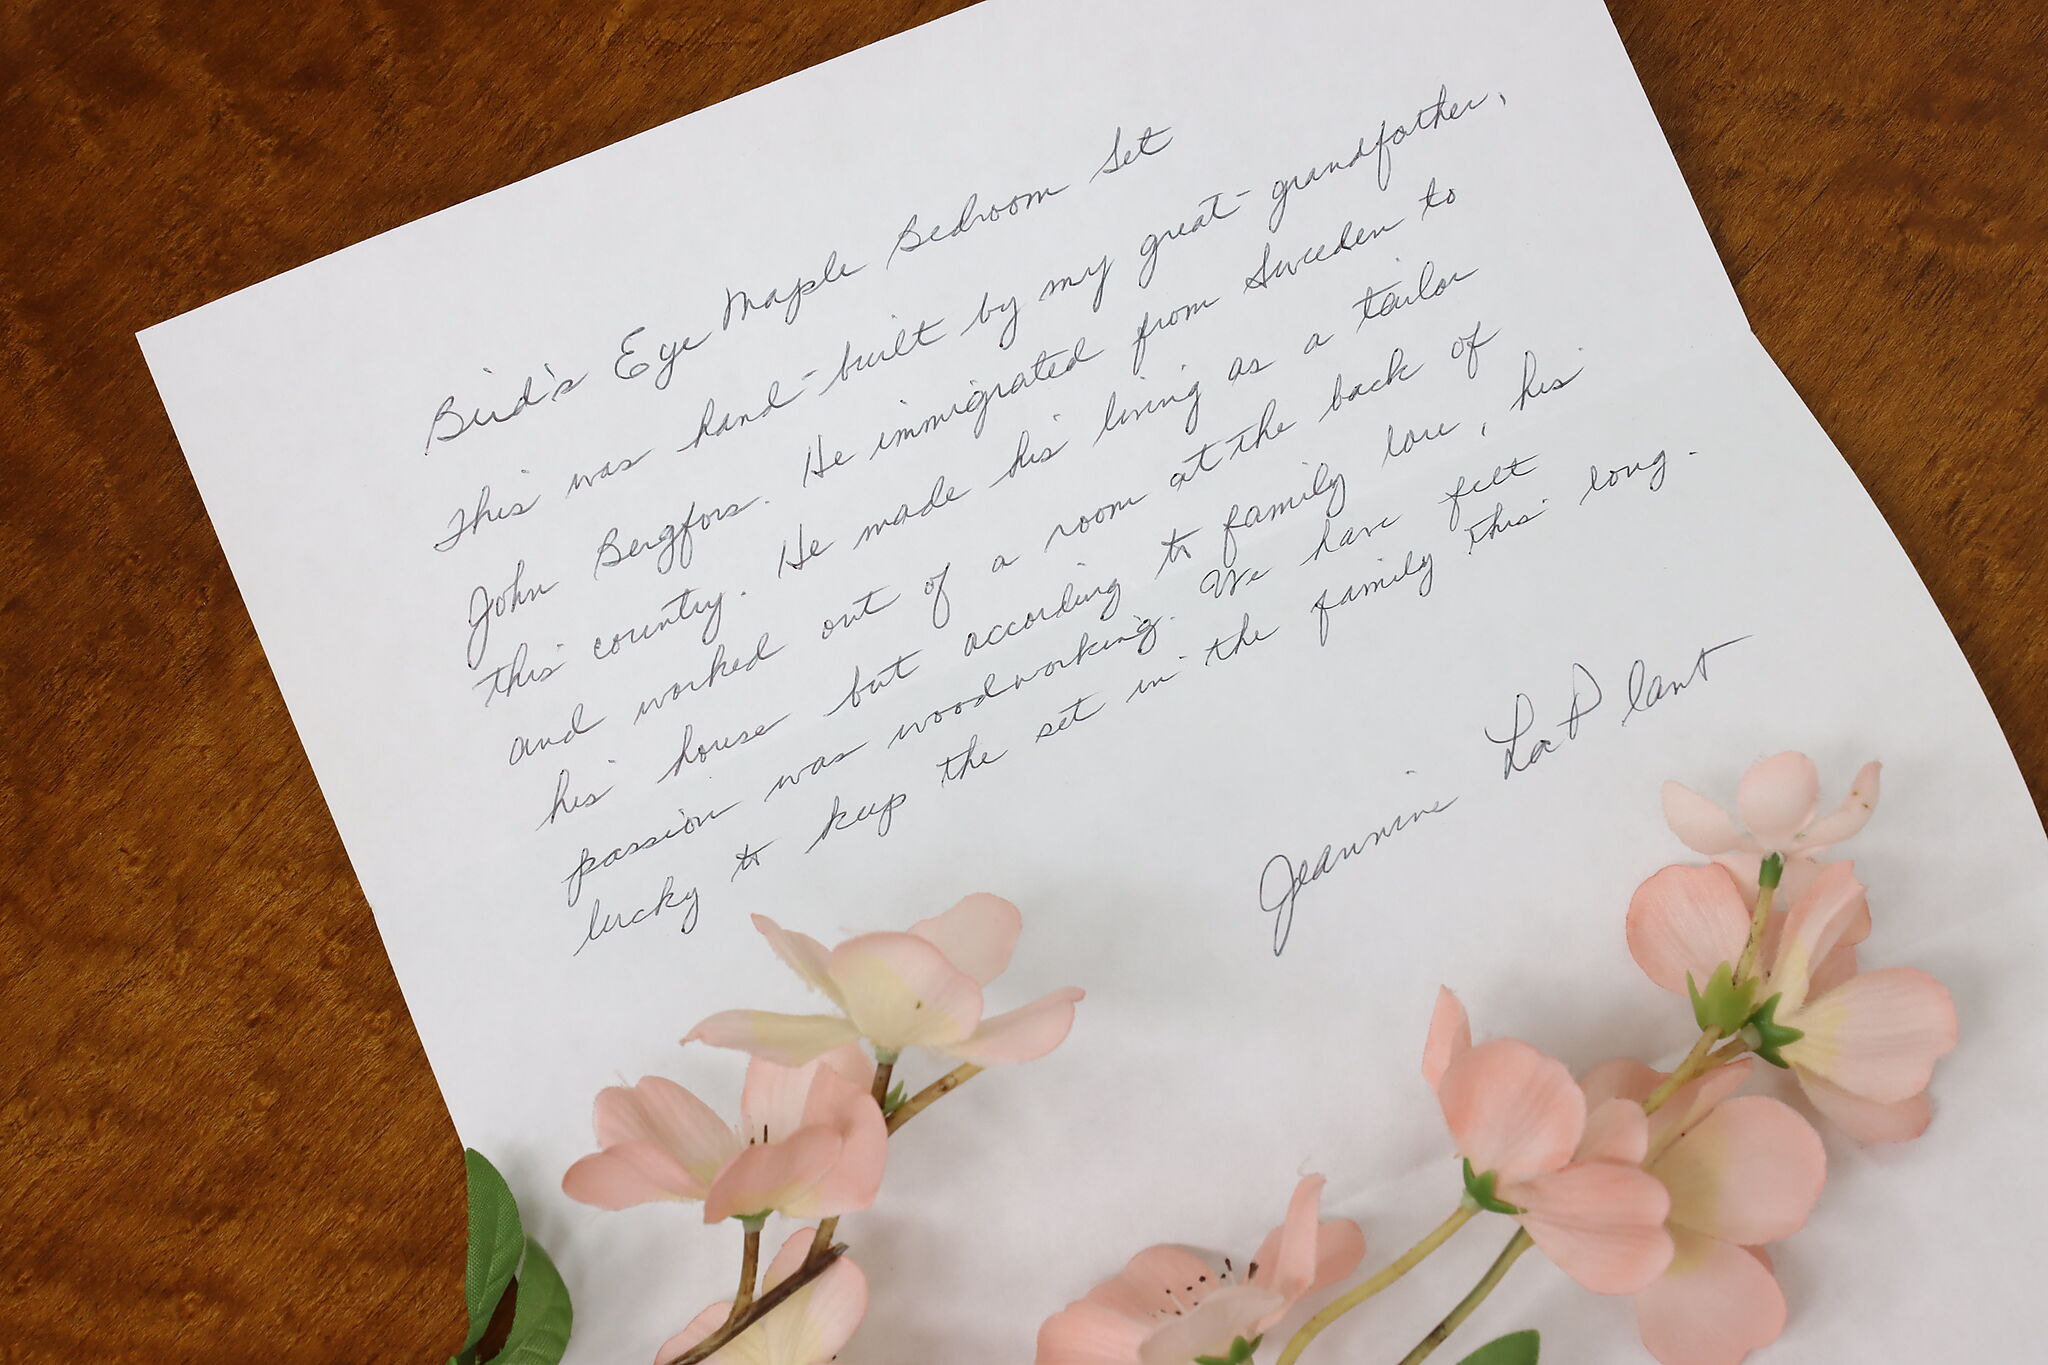 Bird's Eye Maple Bedroom Set
This was hand-built by my great-grandfather,
John Bergfors. He immigrated from Sweden to
this country. He made his living as a tailor
and worked out of a room at the back of
his house but according to family lore, his
passion was woodworking. We have felt
lucky to keep the set in the family this long.
Jeannine LaPlant